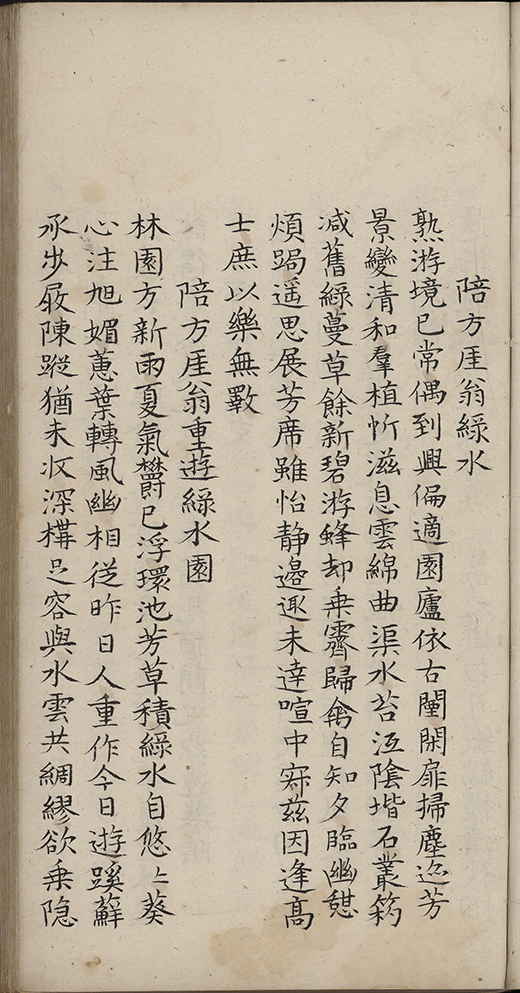 陪方厓翁綠水
熟游境已常偶到興偏適園廬依古闉閑扉掃塵迹芳
景變清和羣植忻滋息雲綿曲渠水苔沍陰堦石叢篛
减舊綠蔓草餘新碧游蜂却乗霽歸禽自知夕臨幽憇
煩跼遥思展芳席雖怡静邉趣未達喧中寂茲因逢高
士庶以樂無斁
陪方厓翁重遊綠水園
林園方新雨夏氣欝已浮環池芳草積綠水自悠〻葵
心注旭媚蕙葉轉風幽相從昨日人重作今日遊蹊蘚
承步屐陳蹤猶未收深構足容與水雲共綢繆欲乗隐